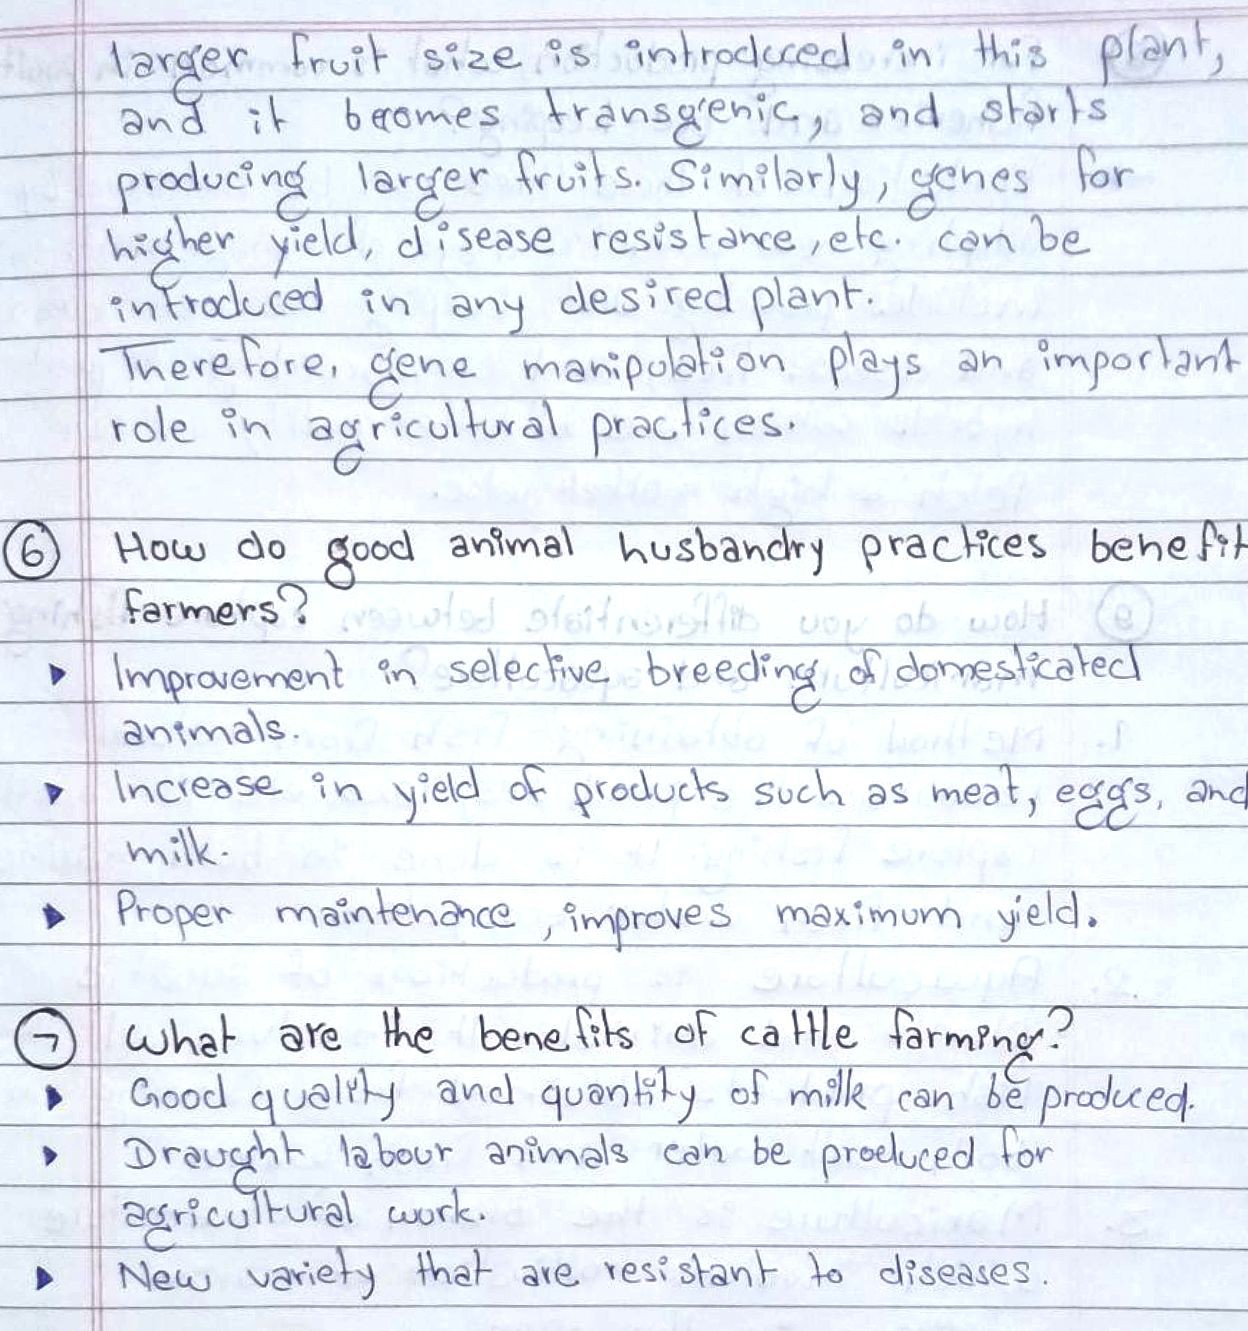 larger fruit size is introduced in this plant,
and it becomes transgenic, and starts
producing larger fruits. Similarly, genes for
higher yield, disease resistance, etc. can be
introduced in any desired plant.
Therefore, gene manipulation plays an important
role in agricultural practices.
6 How do good animal husbandry practices benefit
farmers?
▸ Improvement in selective breeding of domesticated
animals.
▸ Increase in yield of products such as meat, eggs, and
milk.
▸ Proper maintenance, improves maximum yield.
7 What are the benefits of cattle farming?
▸ Good quality and quantity of milk can be produced.
▸ Draught labour animals can be produced for
agricultural work.
▸ New variety that are resistant to diseases.